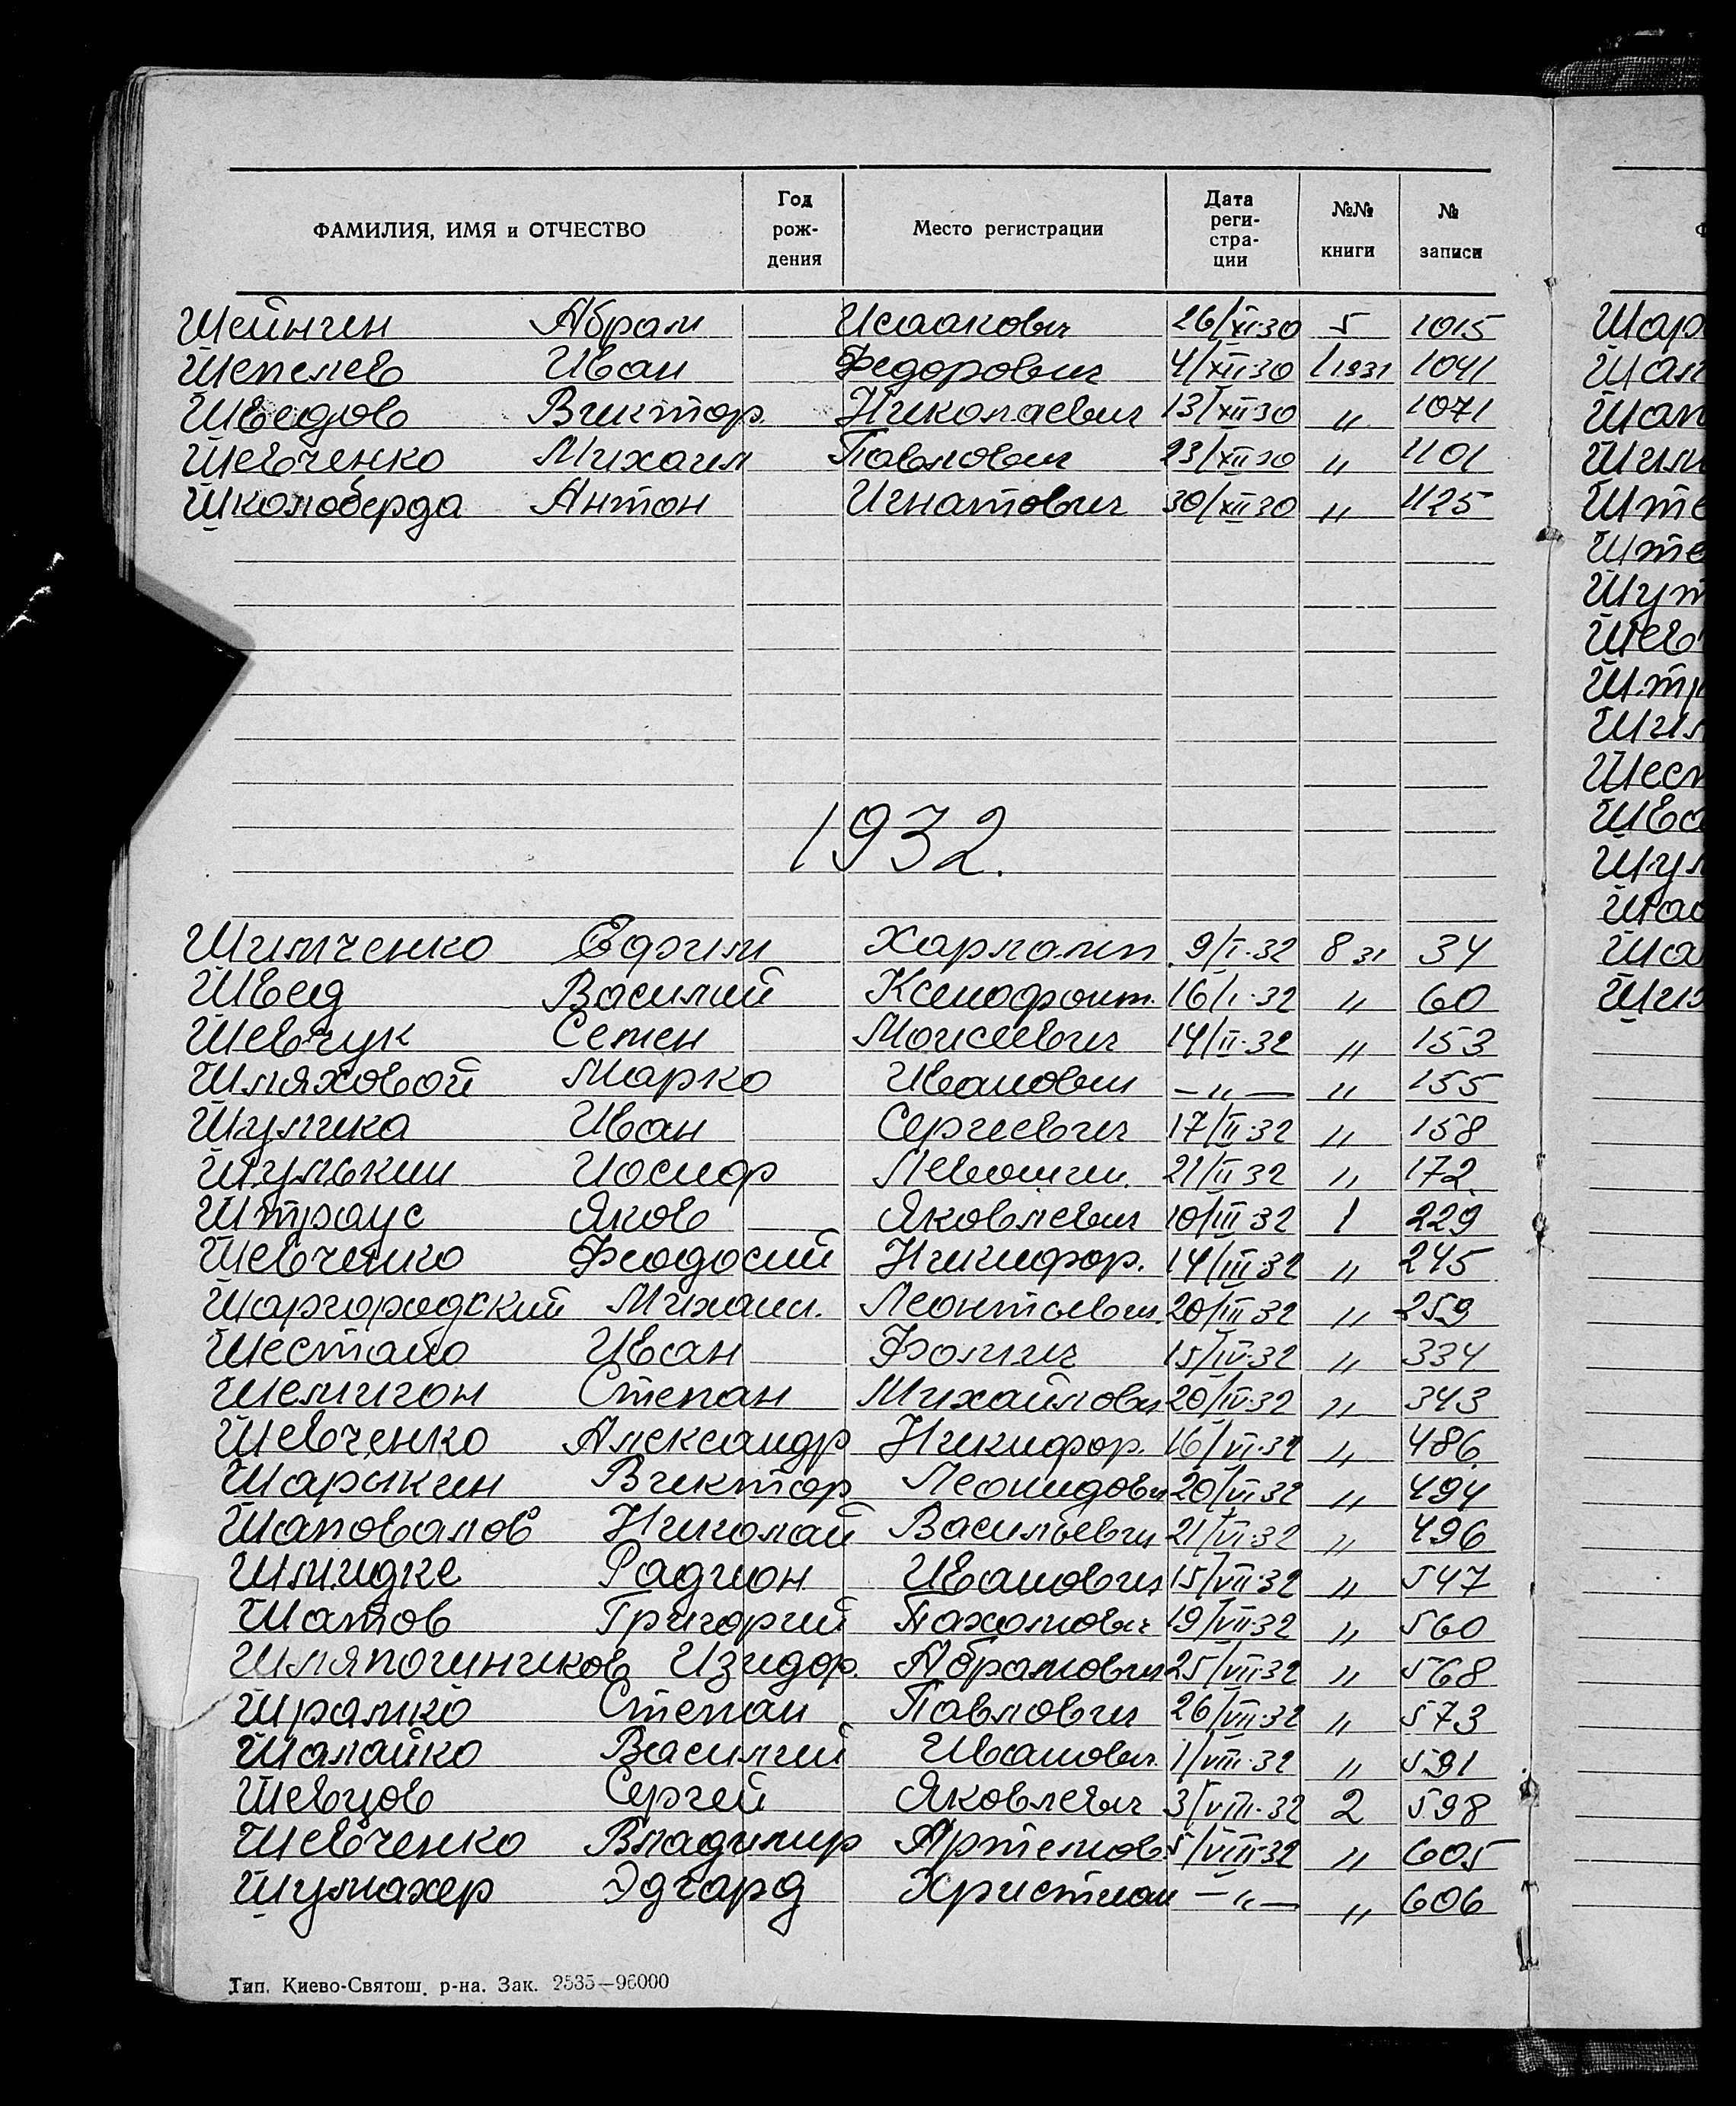 ФАМИЛИЯ, ИМЯ и ОТЧЕСТВО Год рож- дения Место регистрации Дата реги- стра- ции №№ книги № записи
Шейнгин Абрам Исаакович 26/XI·30 5 1015
Шепелев Иван Федорович 4/XII·30 1 1931 1041
Шведов Виктор. Николаевич 13/XII·30 " 1071
Шевченко Михаил Павлович 23/XII 30 " 1101
Школоберда Антон Игнатович 30/XII 30 " 1125
1932.
Шимченко Ефим Харламп. 9/I·32 8 31 34
Швед Василий Ксенофонт. 16/I·32 " 60
Шевчук Семен Моисеевич 14/II·32 " 153
Шляховой Марко Иванович –"– " 155
Шулика Иван Сергеевич 17/II·32 " 158
Шулькин Иосиф 21/II 32 " 172
Штраус Яков Яковлевич 10/III 32 1 229
Шевченко Феодосий Никифор. 14/III·32 " 245
Шаргородский Михаил. Леонтьевич. 20/III 32 " 259
Шестайо Иван Фомич 15/IV·32 " 334
Шелигон Степан Михайлович 20/IV·32 " 343
Шевченко Александр Никифор. 16/VI·32 " 486
Шарыкин Виктор Леонидович 20/VI 32 " 494
Шаповалов Николай Васильевич 21/VI·32 " 496
Шмидке Радион Иванович 15/VII·32 " 547
Шатов Григорий Пахомович 19/VII·32 " 560
Шляпочиников Изидор. Абрамович 25/VII·32 " 568
Шрамко Степан Павлович 26/VII·32 " 573
Шалайко Василий Иванович. 1/VIII·32 " 591
Шевцов Сергей Яковлевич 3/VIII·32 2 598
Шевченко Владимир Артемов. 5/VIII·32 " 605
Шумахер Эдгард Христиан –"– " 606
Тип. Киево-Святош. р-на. Зак. 2535—96000
Шар
Шу
Шев
Шес
Шва